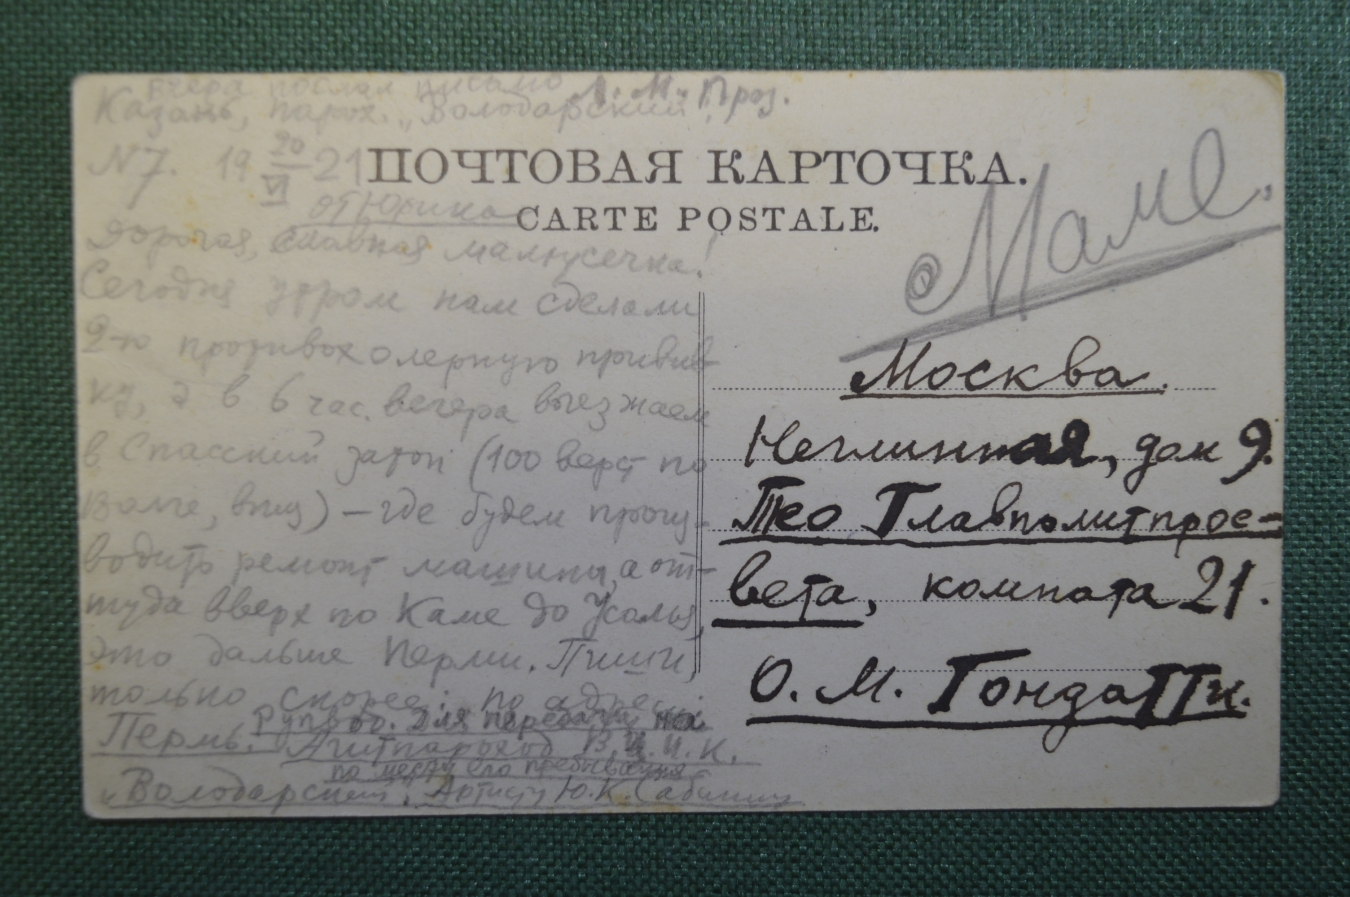 Вчера послал письмо Л. М. Проз.
Казань, парох. „Володарский".
N 7. 19 20/VI 21
от Юрика
ПОЧТОВАЯ КАРТОЧКА.
CARTE POSTALE.
Маме.
Дорогая, славная мамусечка!
Сегодня утром нам сделали
2-ю противохолерную привив-
ку, а в 6 час. вечера выезжаем
в Спасский затон (100 верст по
Волге, вниз) — где будем произ-
водить ремонт машины, а от-
туда вверх по Каме до Усолья,
это дальше Перми. Пиши,
только скорее. по адрес.:
Пермь. Рупвод. Для передачи на
Агитпароход В.Ц.И.К.
по месту его пребывания
„Володарский". Артисту Ю. К. Сабинину
Москва.
Неглинная, дом 9.
Тео Главполитпрос-
вета, комната 21.
О. М. Гондатти.